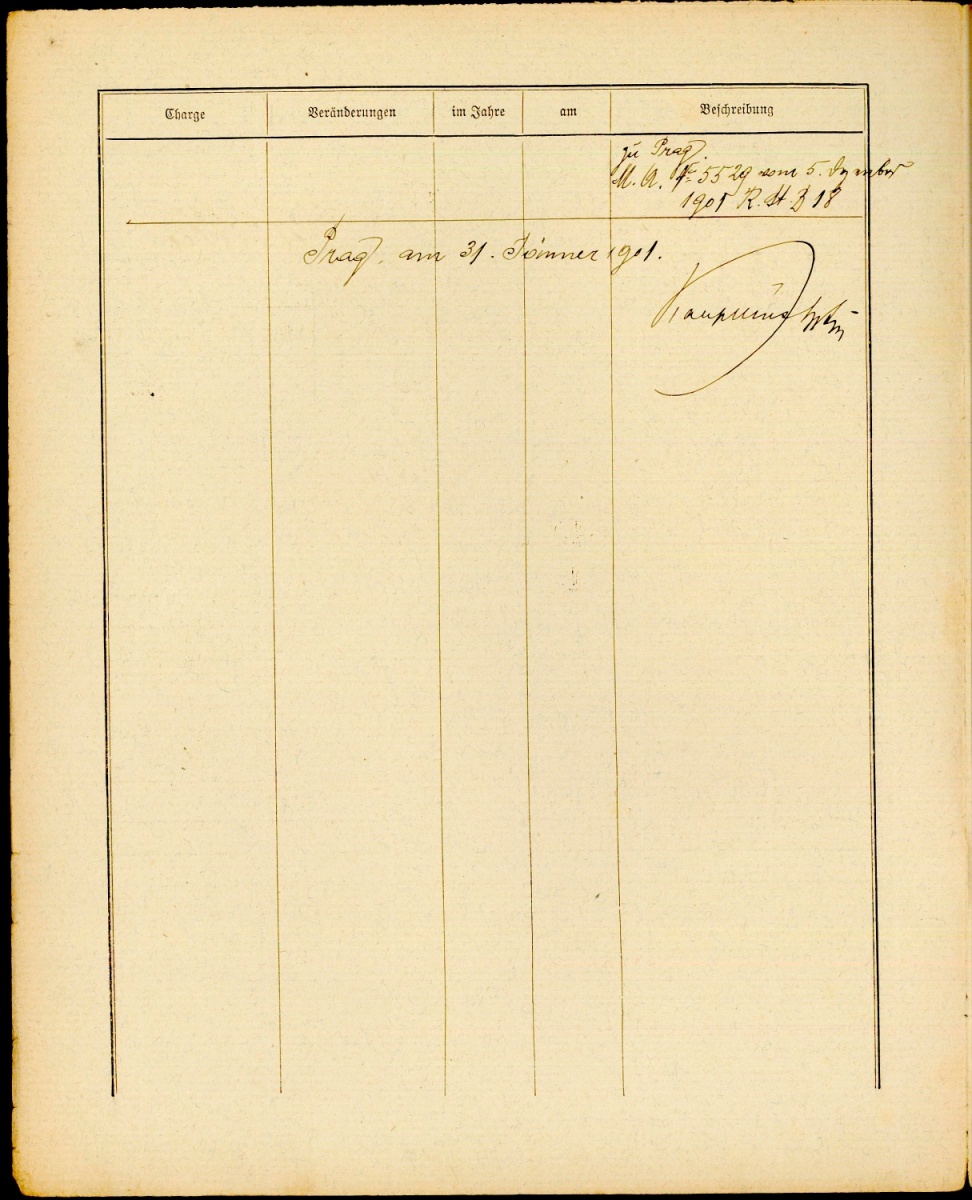 Charge Veränderungen im Jahre am Beschreibung
zu Prag.
M. A. № 5529 vom 5. Dezember
1901 R. St. B 18
Prag, am 31. Jänner 1901.